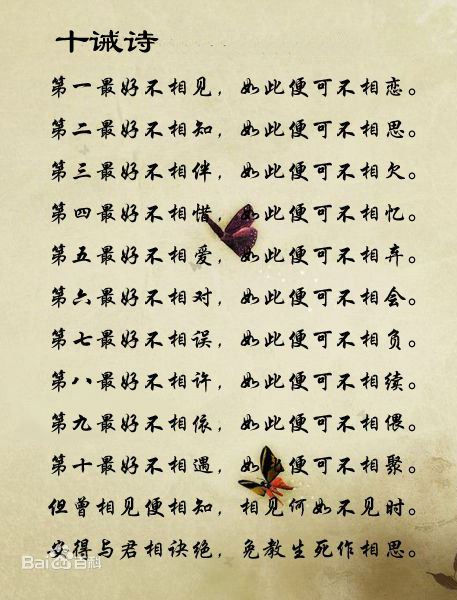 十诫诗
第一最好不相见，如此便可不相恋。
第二最好不相知，如此便可不相思。
第三最好不相伴，如此便可不相欠。
第四最好不相惜，如此便可不相忆。
第五最好不相爱，如此便可不相弃。
第六最好不相对，如此便可不相会。
第七最好不相误，如此便可不相负。
第八最好不相许，如此便可不相续。
第九最好不相依，如此便可不相偎。
第十最好不相遇，如此便可不相聚。
但曾相见便相知，相见何如不见时。
安得与君相诀绝，免教生死作相思。
Bai百科